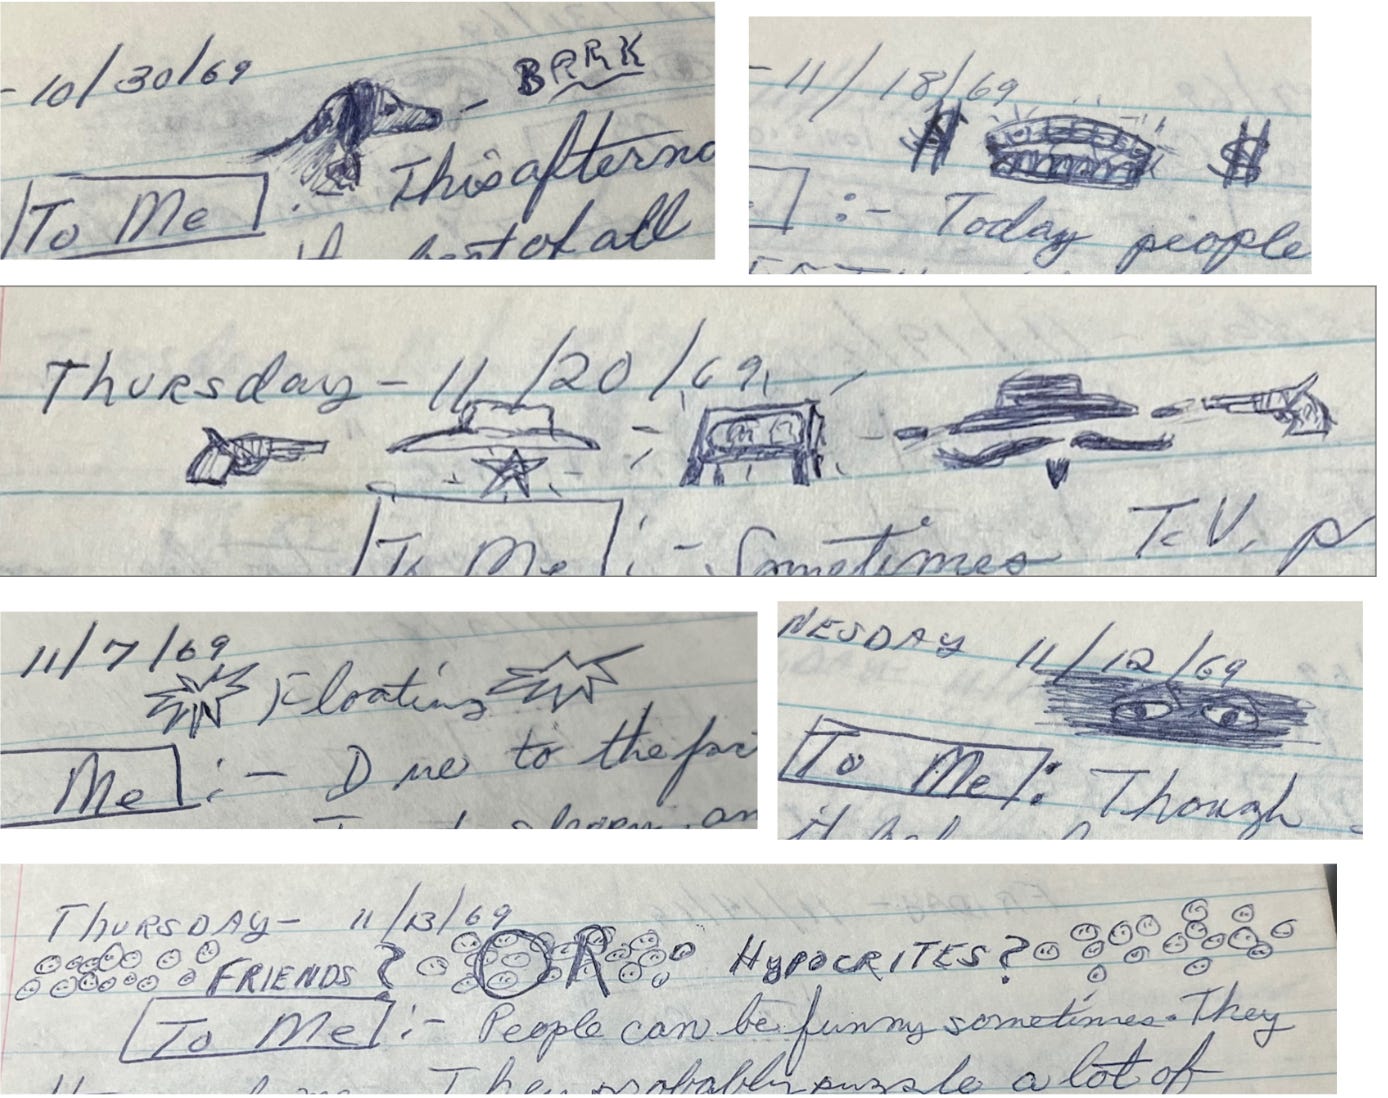 - 10/30/69
- BARK
To Me : This afterno
best of all
- 11/18/69
$ $
:- Today people
Thursday - 11/20/69
To Me :- Sometimes T.V. p
11/7/69
Floating
Me :- Due to the fac
an
NESDAY 11/12/69
To Me : Though
THURSDAY - 11/13/69
FRIENDS? OR HYPOCRITES?
To Me :- People can be funny sometimes. They
They probably puzzle a lot of